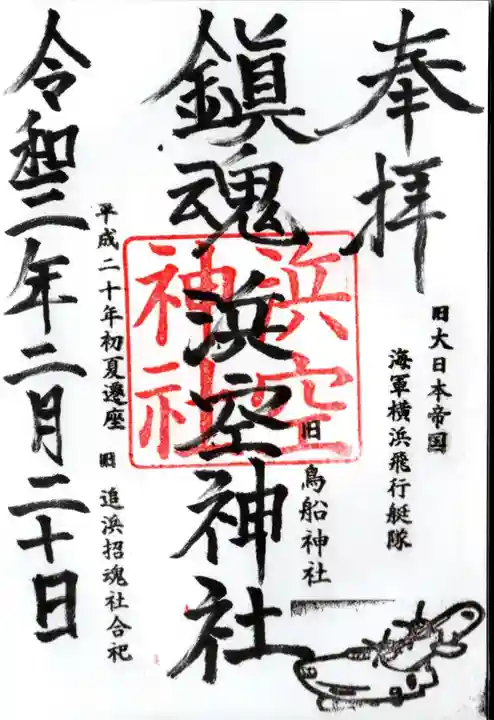 奉拝
旧大日本帝国
海軍横浜飛行艇隊
旧
鳥船神社
鎮魂 浜空神社
浜空
神社
平成二十年初夏遷座 旧 追浜招魂社合祀
令和三年二月二十日